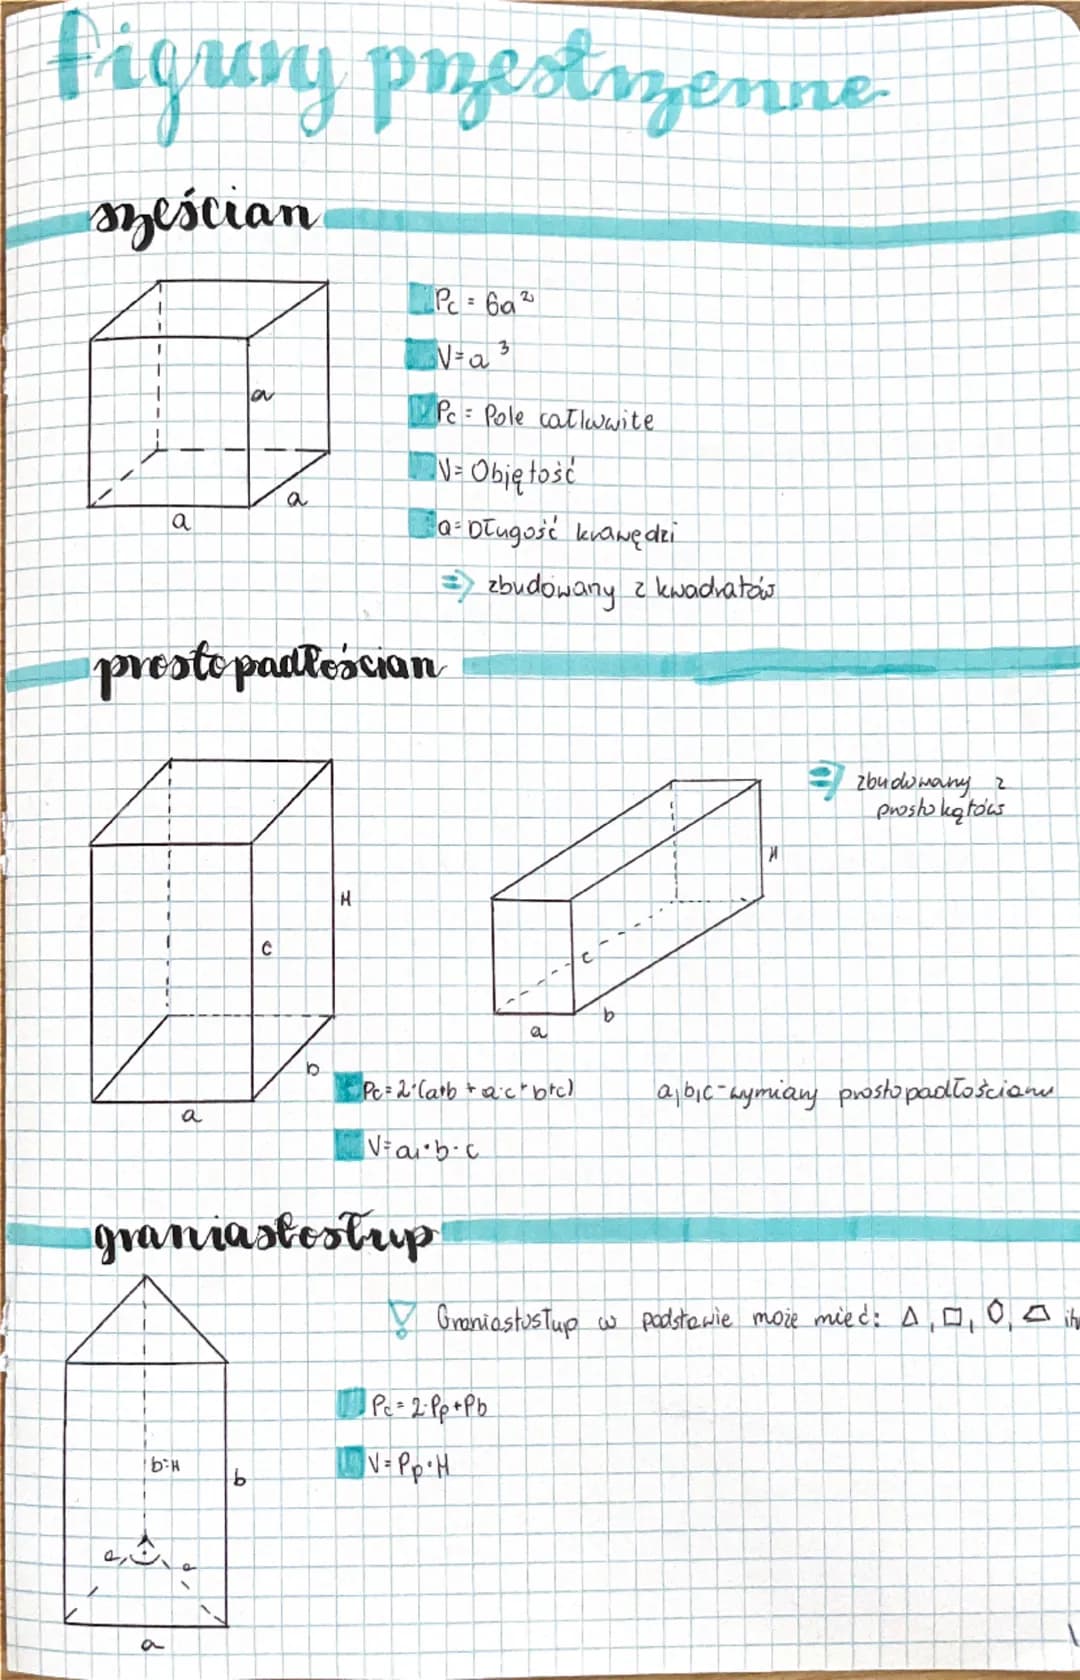 figury przestrzenne
sześcian
a
a
a
Pc = 6a²
V = a³
Pc = Pole całkowite
V = Objętość
a = Długość krawędzi
⇒ zbudowany z kwadratów
prostopadłościan
⇒ zbudowany z
prostokątów
H
c
b
a
H
c
b
a
Pc = 2·(a·b + a·c + b·c)
a,b,c - wymiary prostopadłościanu
V = a·b·c
graniastosłup
Graniastosłup w podstawie może mieć: △, □, ⬠, ⏢ itp
Pc = 2·Pp + Pb
V = Pp·H
b=H
b
a
a
a